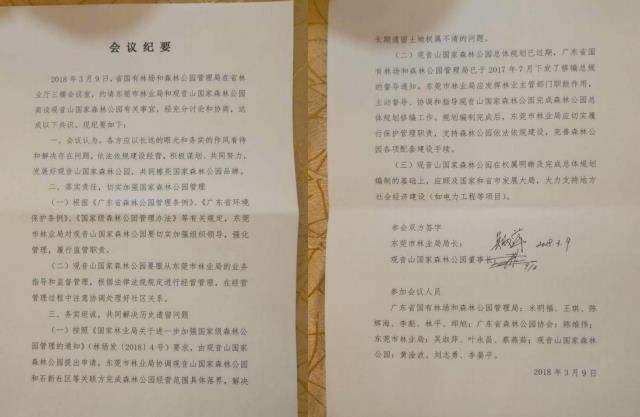 会议纪要
2018年3月9日，省国有林场和森林公园管理局在省林
业厅三楼会议室，约请东莞市林业局和观音山国家森林公园
商谈观音山国家森林公园有关事宜，经充分讨论和协商，达
成以下共识，现纪要如下：
一、会议认为，各方应以长远的眼光和务实的作风看待
和解决存在问题，依法依规建设经营，积极谋划、共同努力，
发展好观音山国家森林公园，共同擦亮国家森林公园品牌。
二、落实责任，切实加强国家森林公园管理
（一）根据《广东省森林公园管理条例》、《广东省环境
保护条例》、《国家级森林公园管理办法》等有关规定，东莞
市林业局对观音山国家森林公园要切实加强组织领导，强化
管理，履行监管职责。
（二）观音山国家森林公园要服从东莞市林业局的业务
指导和监督管理，根据法律法规规定进行经营管理，在经营
管理过程中注意协调处理好社区关系。
三、务实坦诚，共同解决历史遗留问题
（一）按照《国家林业局关于进一步加强国家级森林公
园管理的通知》（林场发〔2018〕4号）要求，由观音山国家
森林公园提出申请，东莞市林业局协调观音山国家森林公园
和石新社区等关联方完成森林公园经营范围具体落界，解决
长期遗留土地权属不清的问题。
（二）观音山国家森林公园总体规划已过期，广东省国
有林场和森林公园管理局已于2017年7月下发了修编总规
的督导通知。东莞市林业局应发挥林业主管部门职能作用，
主动督导、协调和指导观音山国家森林公园完成森林公园总
体规划修编工作。规划完成后，东莞市林业局应切实履
行保护管理职责，支持森林公园依法依规建设，完善森林公
园各项配套建设手续。
（三）观音山国家森林公园在权属明晰及完成总体规划
编制的基础上，应顾及国家和省市发展大局，大力支持地方
社会经济建设（如电力工程等项目）。
参会双方签字
东莞市林业局局长： 2018.3.9
观音山国家森林公园董事长：
参加会议人员
广东省国有林场和森林公园管理局：米明福、王琪、陈
辉海、李彪、林平、邱旭；广东省森林公园协会：陈维伟；
东莞市林业局：吴淑萍、叶永昌、蔡燕茹；观音山国家森林
公园：黄淦波、刘志勇、李晏平。
2018年3月9日